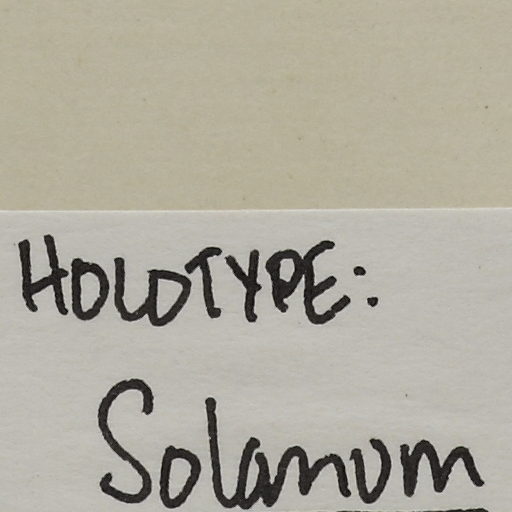 HOLOTYPE:
Solanum